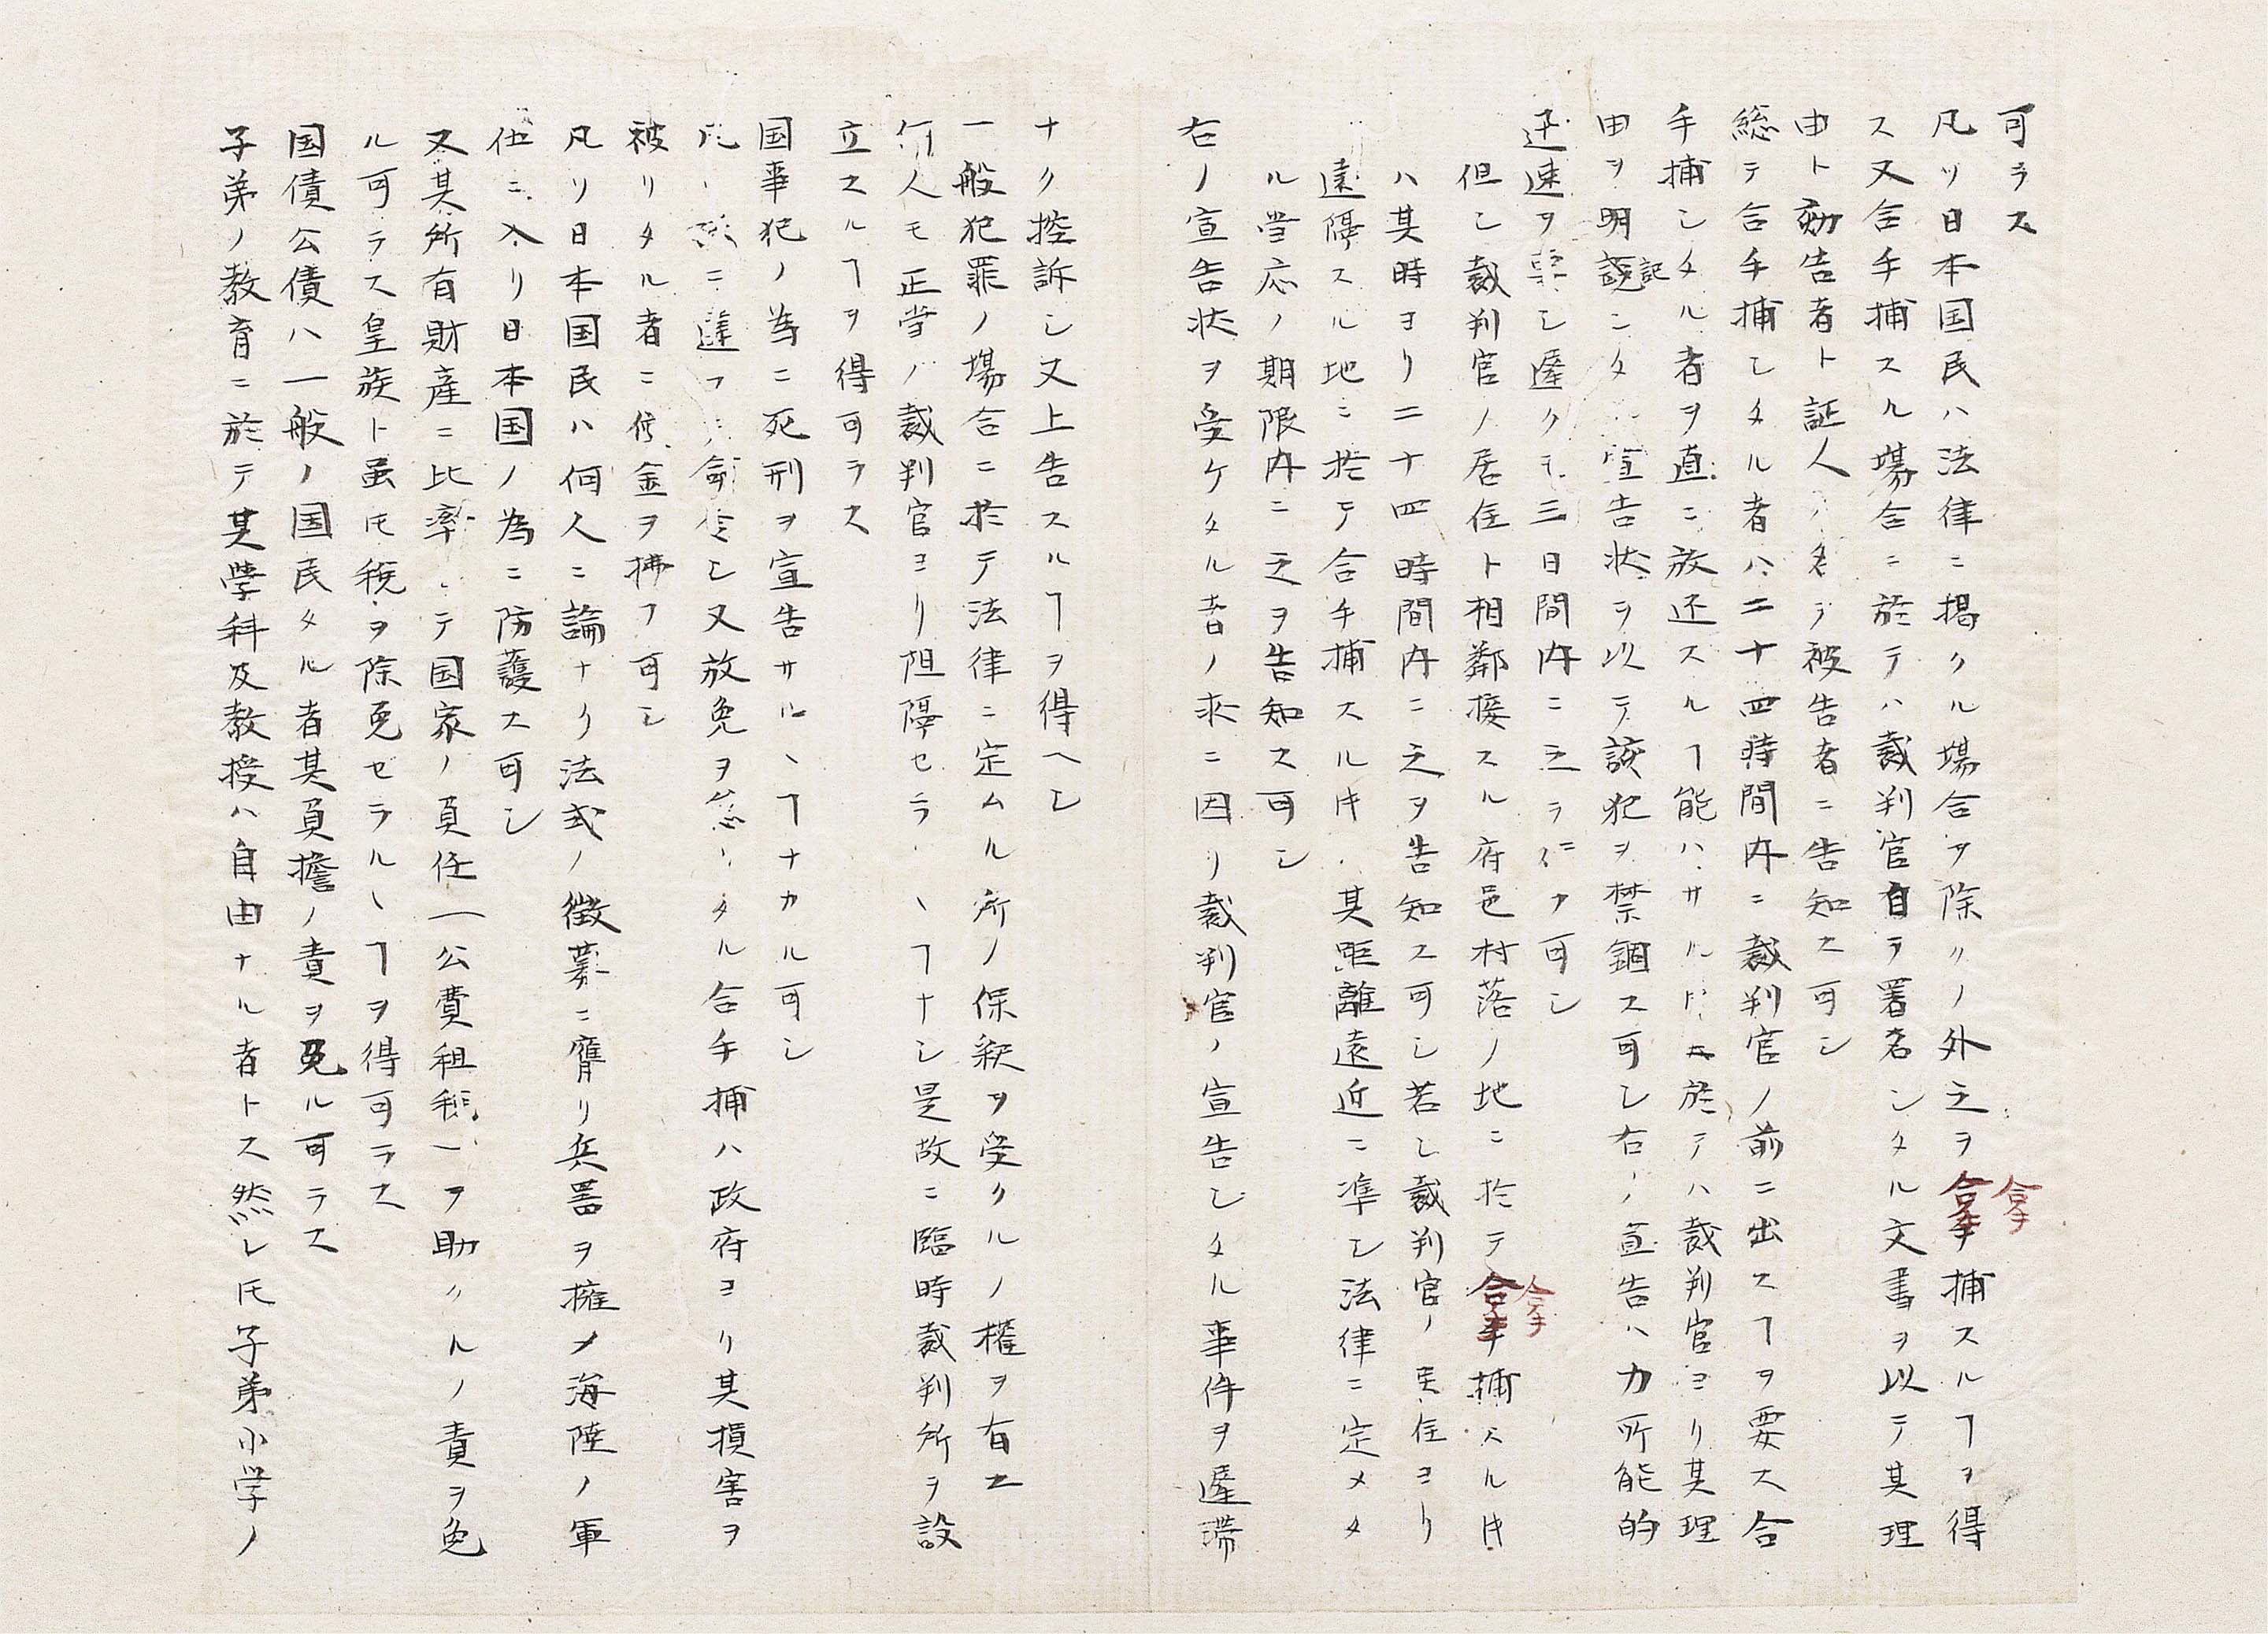 可ラス
凡ソ日本国民ハ法律ニ掲クル場合ヲ除クノ外之ヲ拿捕スルヿヲ得
ス又合手捕スル場合ニ於テハ裁判官自ラ署名シタル文書ヲ以テ其理
由ト劾告者ト証人ノ名ヲ被告者ニ告知ス可シ
総テ合手捕シタル者ハ二十四時間内ニ裁判官ノ前ニ出スヿヲ要ス合
手捕シタル者ヲ直ニ放还スルヿ能ハサルニ於テハ裁判官ヨリ其理
由ヲ明記シタ宣告状ヲ以テ該犯ヲ禁錮ス可シ右ノ宣告ハ力所能的
迅速ヲ要シ遅クモ三日間内ニ之ヲ行フ可シ
但シ裁判官ノ居住ト相鄰接スル府邑村落ノ地ニ於テ拿捕スル𪜈
ハ其時ヨリ二十四時間内ニ之ヲ告知ス可シ若シ裁判官ノ居住ヨリ
遠隔スル地ニ於テ合手捕スル𪜈其距離遠近ニ準シ法律ニ定メタ
ル当応ノ期限内ニ之ヲ告知ス可シ
右ノ宣告状ヲ受ケタル者ノ求ニ因リ裁判官ノ宣告シタル事件ヲ遅滞
ナク控訴シ又上告スルヿヲ得ヘシ
一般犯罪ノ場合ニ於テ法律ニ定ムル所ノ保釈ヲ受クルノ権ヲ有ス
何人モ正当ノ裁判官ヨリ阻隔セラヽヿナシ是故ニ臨時裁判所ヲ設
立スルヿヲ得可ラス
国事犯ノ為ニ死刑ヲ宣告サルヽヿナカル可シ
凡ソ法ニ違フテ命令シ又放免ヲ怠リタル合手捕ハ政府ヨリ其損害ヲ
被リタル者ニ償金ヲ拂フ可シ
凡ソ日本国民ハ何人ニ論ナク法式ノ徴募ニ膺リ兵器ヲ擁メ海陸ノ軍
伍ニ入リ日本国ノ為ニ防護ス可シ
又其所有財産ニ比率シテ国家ノ負任(公費租税)ヲ助クルノ責ヲ免
ル可ラス皇族ト虽𪜈税ヲ除免セラルヽヿヲ得可ラス
国債公債ハ一般ノ国民タル者其負擔ノ責ヲ免ル可ラス
子弟ノ教育ニ於テ其学科及教授ハ自由ナル者トス然レ𪜈子弟小学ノ